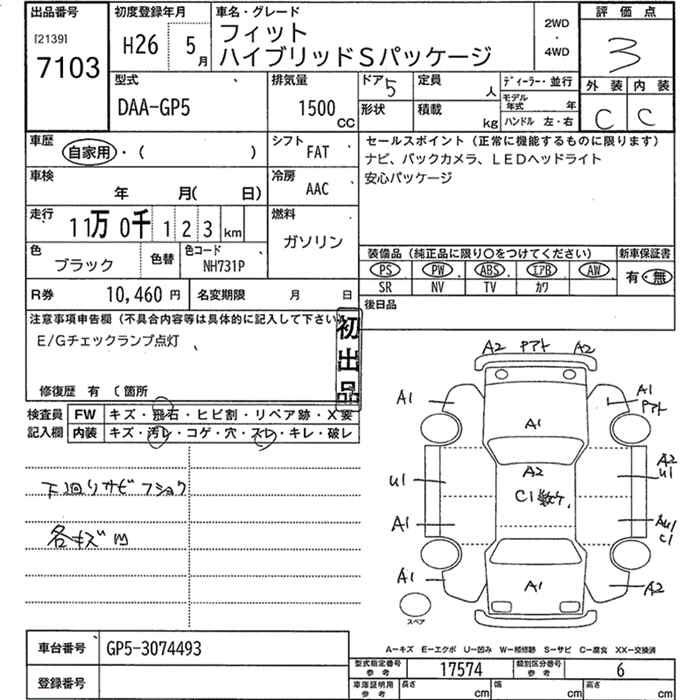 出品番号
[2139]
7103
初度登録年月
H26 5月
車名・グレード
フィット
ハイブリッドSパッケージ
2WD
・
4WD
評価点
3
外装 内装
C C
型式
DAA-GP5
排気量
1500
CC
ドア 5
形状
定員 人
積載 kg
ディーラー・並行
モデル年式 年
ハンドル 左・右
車歴
自家用・( )
シフト
FAT
車検
年 月(日)
冷房
AAC
走行
11万0千123km
燃料
ガソリン
色
ブラック
色替
色コード
NH731P
R券 10,460円
名変期限 月 日
セールスポイント(正常に機能するものに限ります)
ナビ、バックカメラ、LEDヘッドライト
安心パッケージ
装備品(純正品に限り○をつけてください)
PS PW ABS エアB AW
SR NV TV カワ
新車保証書
有・無
後日品
注意事項申告欄(不具合内容等は具体的に記入して下さい
E/Gチェックランプ点灯
初出品
修復歴 有 〔箇所
検査員
記入欄
FW キズ・飛石・ヒビ割・リペア跡・X要
内装 キズ・汚レ・コゲ・穴・スレ・キレ・破レ
下廻りサビフショク
各キズ凹
A2 アト A2
A1 A1
アト
A1
A2
U1 A2
U1
C1数ケ.
A1 AU1
C1
A1 A1 A2
スペア
A-キズ E-エクボ U-凹み W-補修跡 S-サビ C-腐食 XX-交換済
車台番号 GP5-3074493
登録番号
型式指定番号
参考
17574
類別区分番号
参考
6
車庫証明用
参考
長さ cm
幅 cm
高さ cm